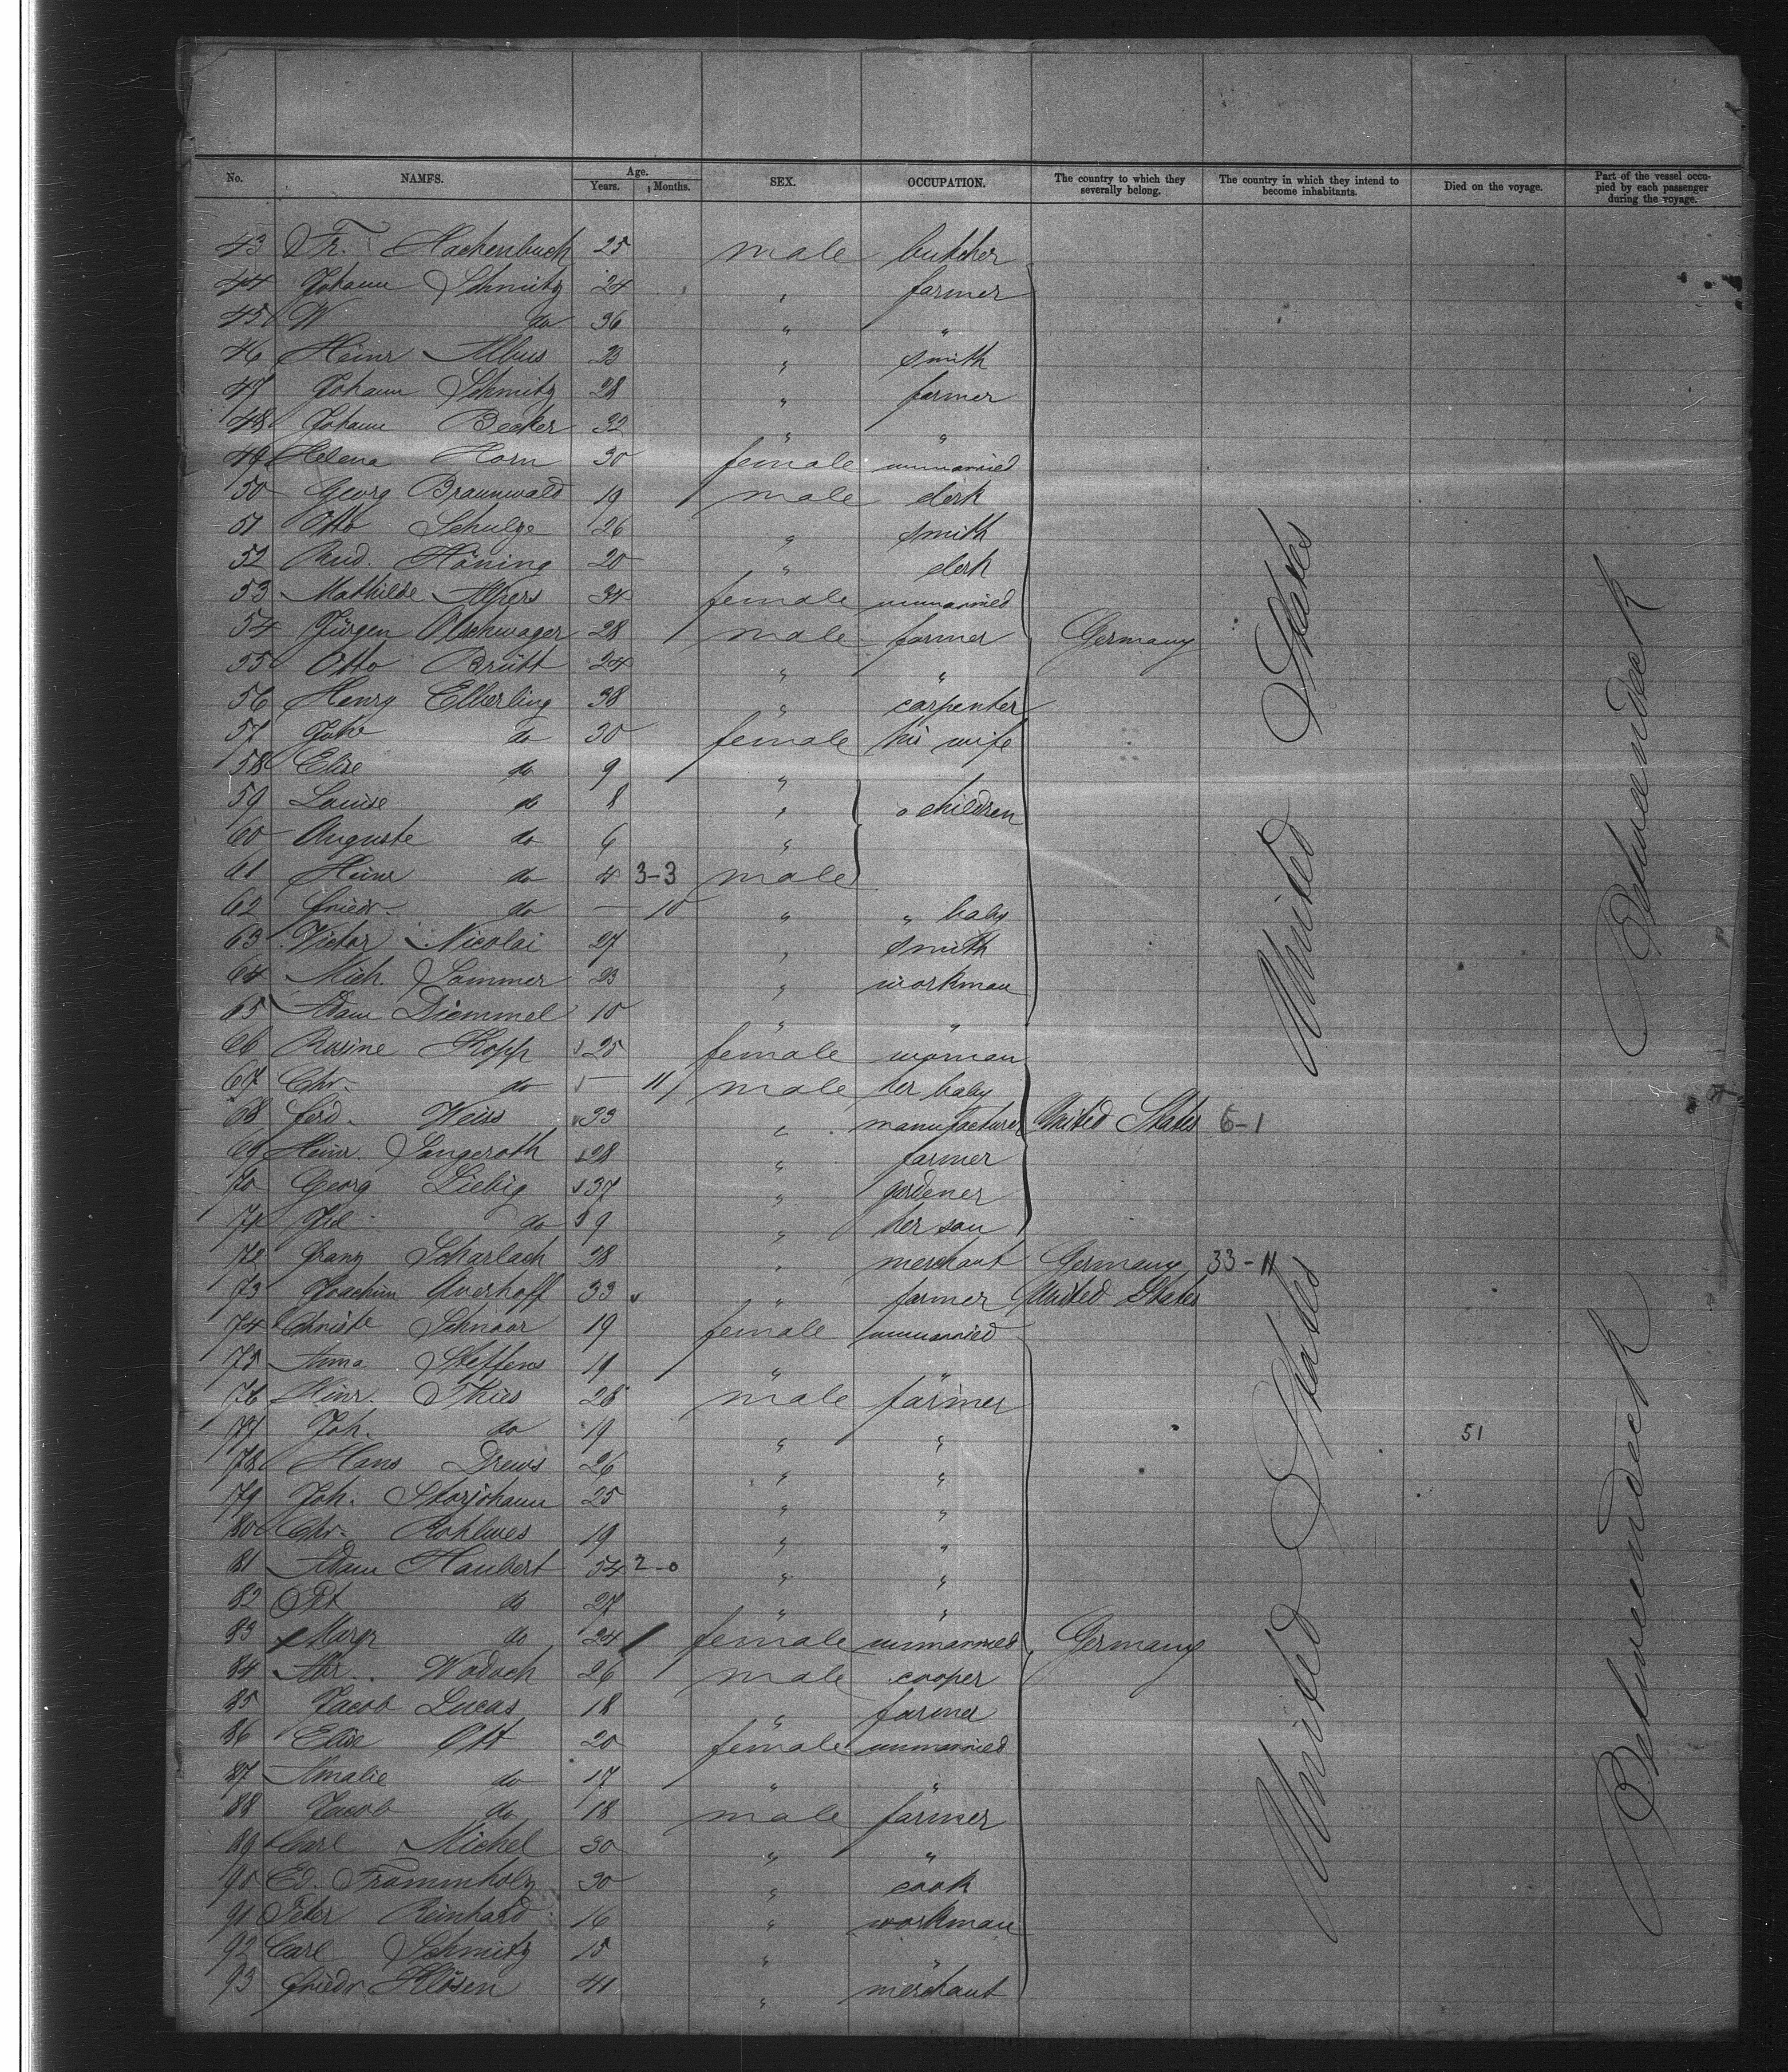 No. NAMES. Age. Years. Months. SEX. OCCUPATION. The country to which they severally belong. The country in which they intend to become inhabitants. Died on the voyage. Part of the vessel occupied by each passenger during the voyage.
43 Fr. Hachenbuch 25 male butcher
44 Johann Schmitz 24 " farmer
45 W do 36 " "
46 Heinr Albus 23 " smith
47 Johann Schmitz 28 " farmer
48 Johann Becker 32 " "
49 Helena Horn 30 female unmarried
50 Georg Braunwald 19 male clerk
51 Otto Schulze 26 " smith
52 Rud. Höning 20 " clerk
53 Mathilde Alpers 34 female unmarried
54 Jürgen Olschwager 28 male farmer Germany
55 Otto Brütt 24 " "
56 Henry Elberling 38 " carpenter
57 do 30 female his wife
58 Elise do 9 "
59 Louise do 8 " " children
60 Auguste do 6 "
61 Heinr do 4 3-3 male
62 Friedr. do — 10 " " baby
63 Victor Nicolai 27 " smith
64 Mich. Sommer 23 " workman
65 Adam Diemmel 10 " "
66 Rosine Kopp 25 female woman
67 Chr. do — 11 male her baby
68 Ferd. Weiss 33 " manufacturer United States 6-1
69 Heinr. Langeroth 28 " farmer
70 Georg Liebig 37 " gardener
71 do 9 " her son
72 Franz Scharlach 38 " merchant Germany 33-11
73 Joachim Averhoff 33 " farmer United States
74 Christe Schnoor 19 female unmarried
75 Anna Steffens 19 " "
76 Hinr. Thies 28 male farmer
77 Joh. do 19 " " 51
78 Hans Drews 26 " "
79 Joh. Storjohann 25 " "
80 Chr. Rohlwes 19 " "
81 Adam Haubert 54 2-0 " "
82 Pet do 27 " "
83 Margr do 24 female unmarried Germany
84 Wodach 26 male cooper
85 Jacob Lucas 18 " farmer
86 Elise Ott 20 female unmarried
87 Amalie do 17 " "
88 Jacob do 18 male farmer
89 Carl Michel 30 " "
90 Ed. Frommholz 30 " cook
91 Peter Reinhard 16 " workman
92 Carl Schmitz 15 " "
93 Friedr. Klösen 41 " merchant
United States
United States
Betweendeck
Betweendeck